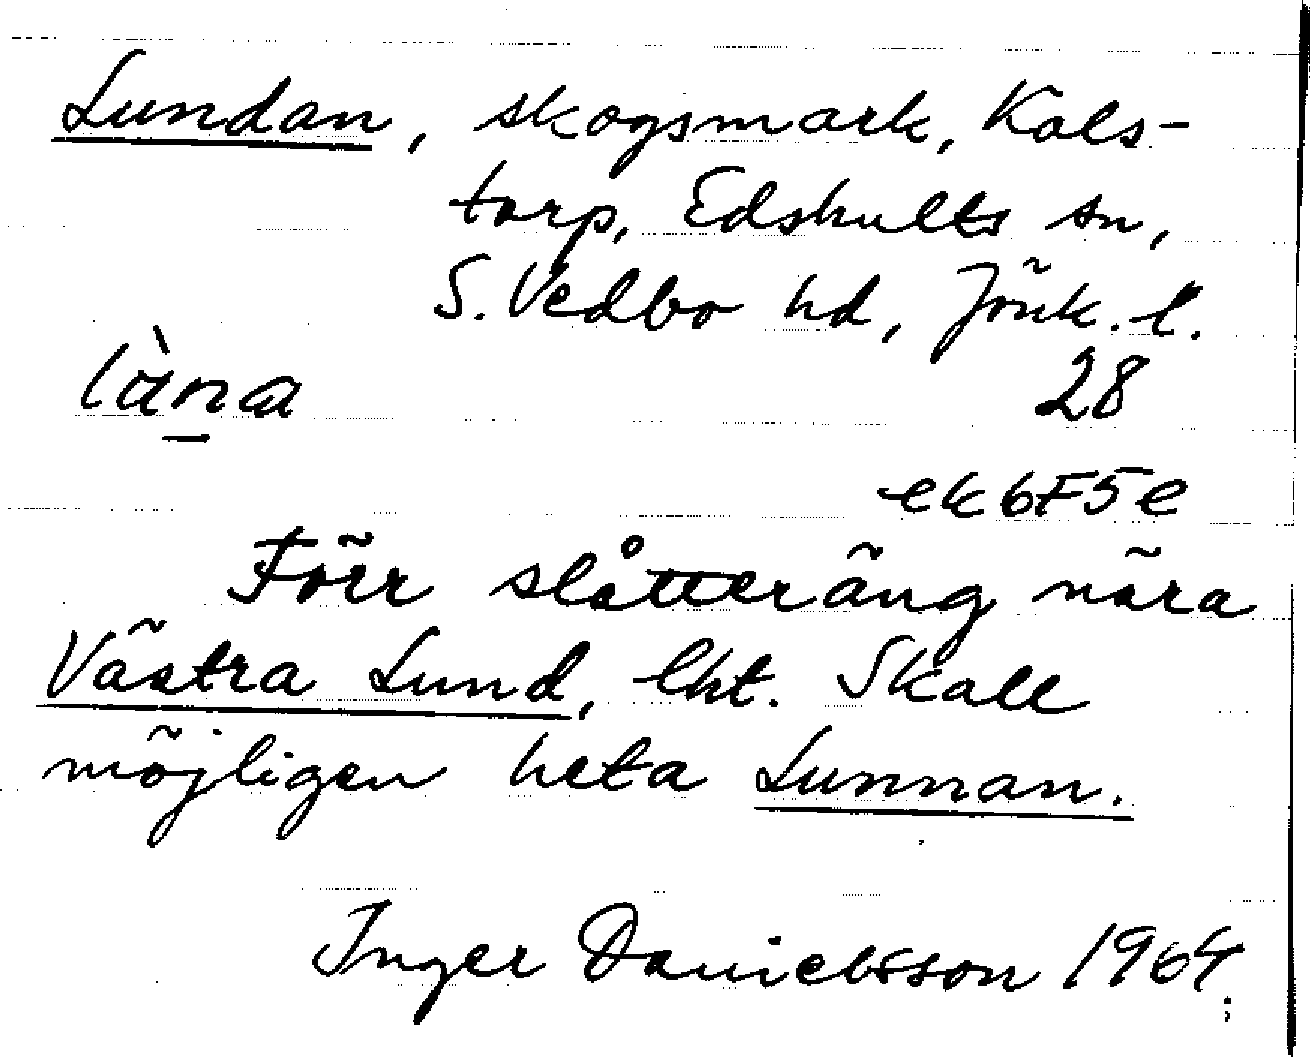 Lundan, skogsmark, Kals-
torp, Edshults sn,
S. Vedbo hd, Jönk. l.
làna 28
ek 6F5e
Förr slåtteräng nära
Västra Lund, lht. Skall
möjligen heta Lunnan.
Inger Danielsson 1964